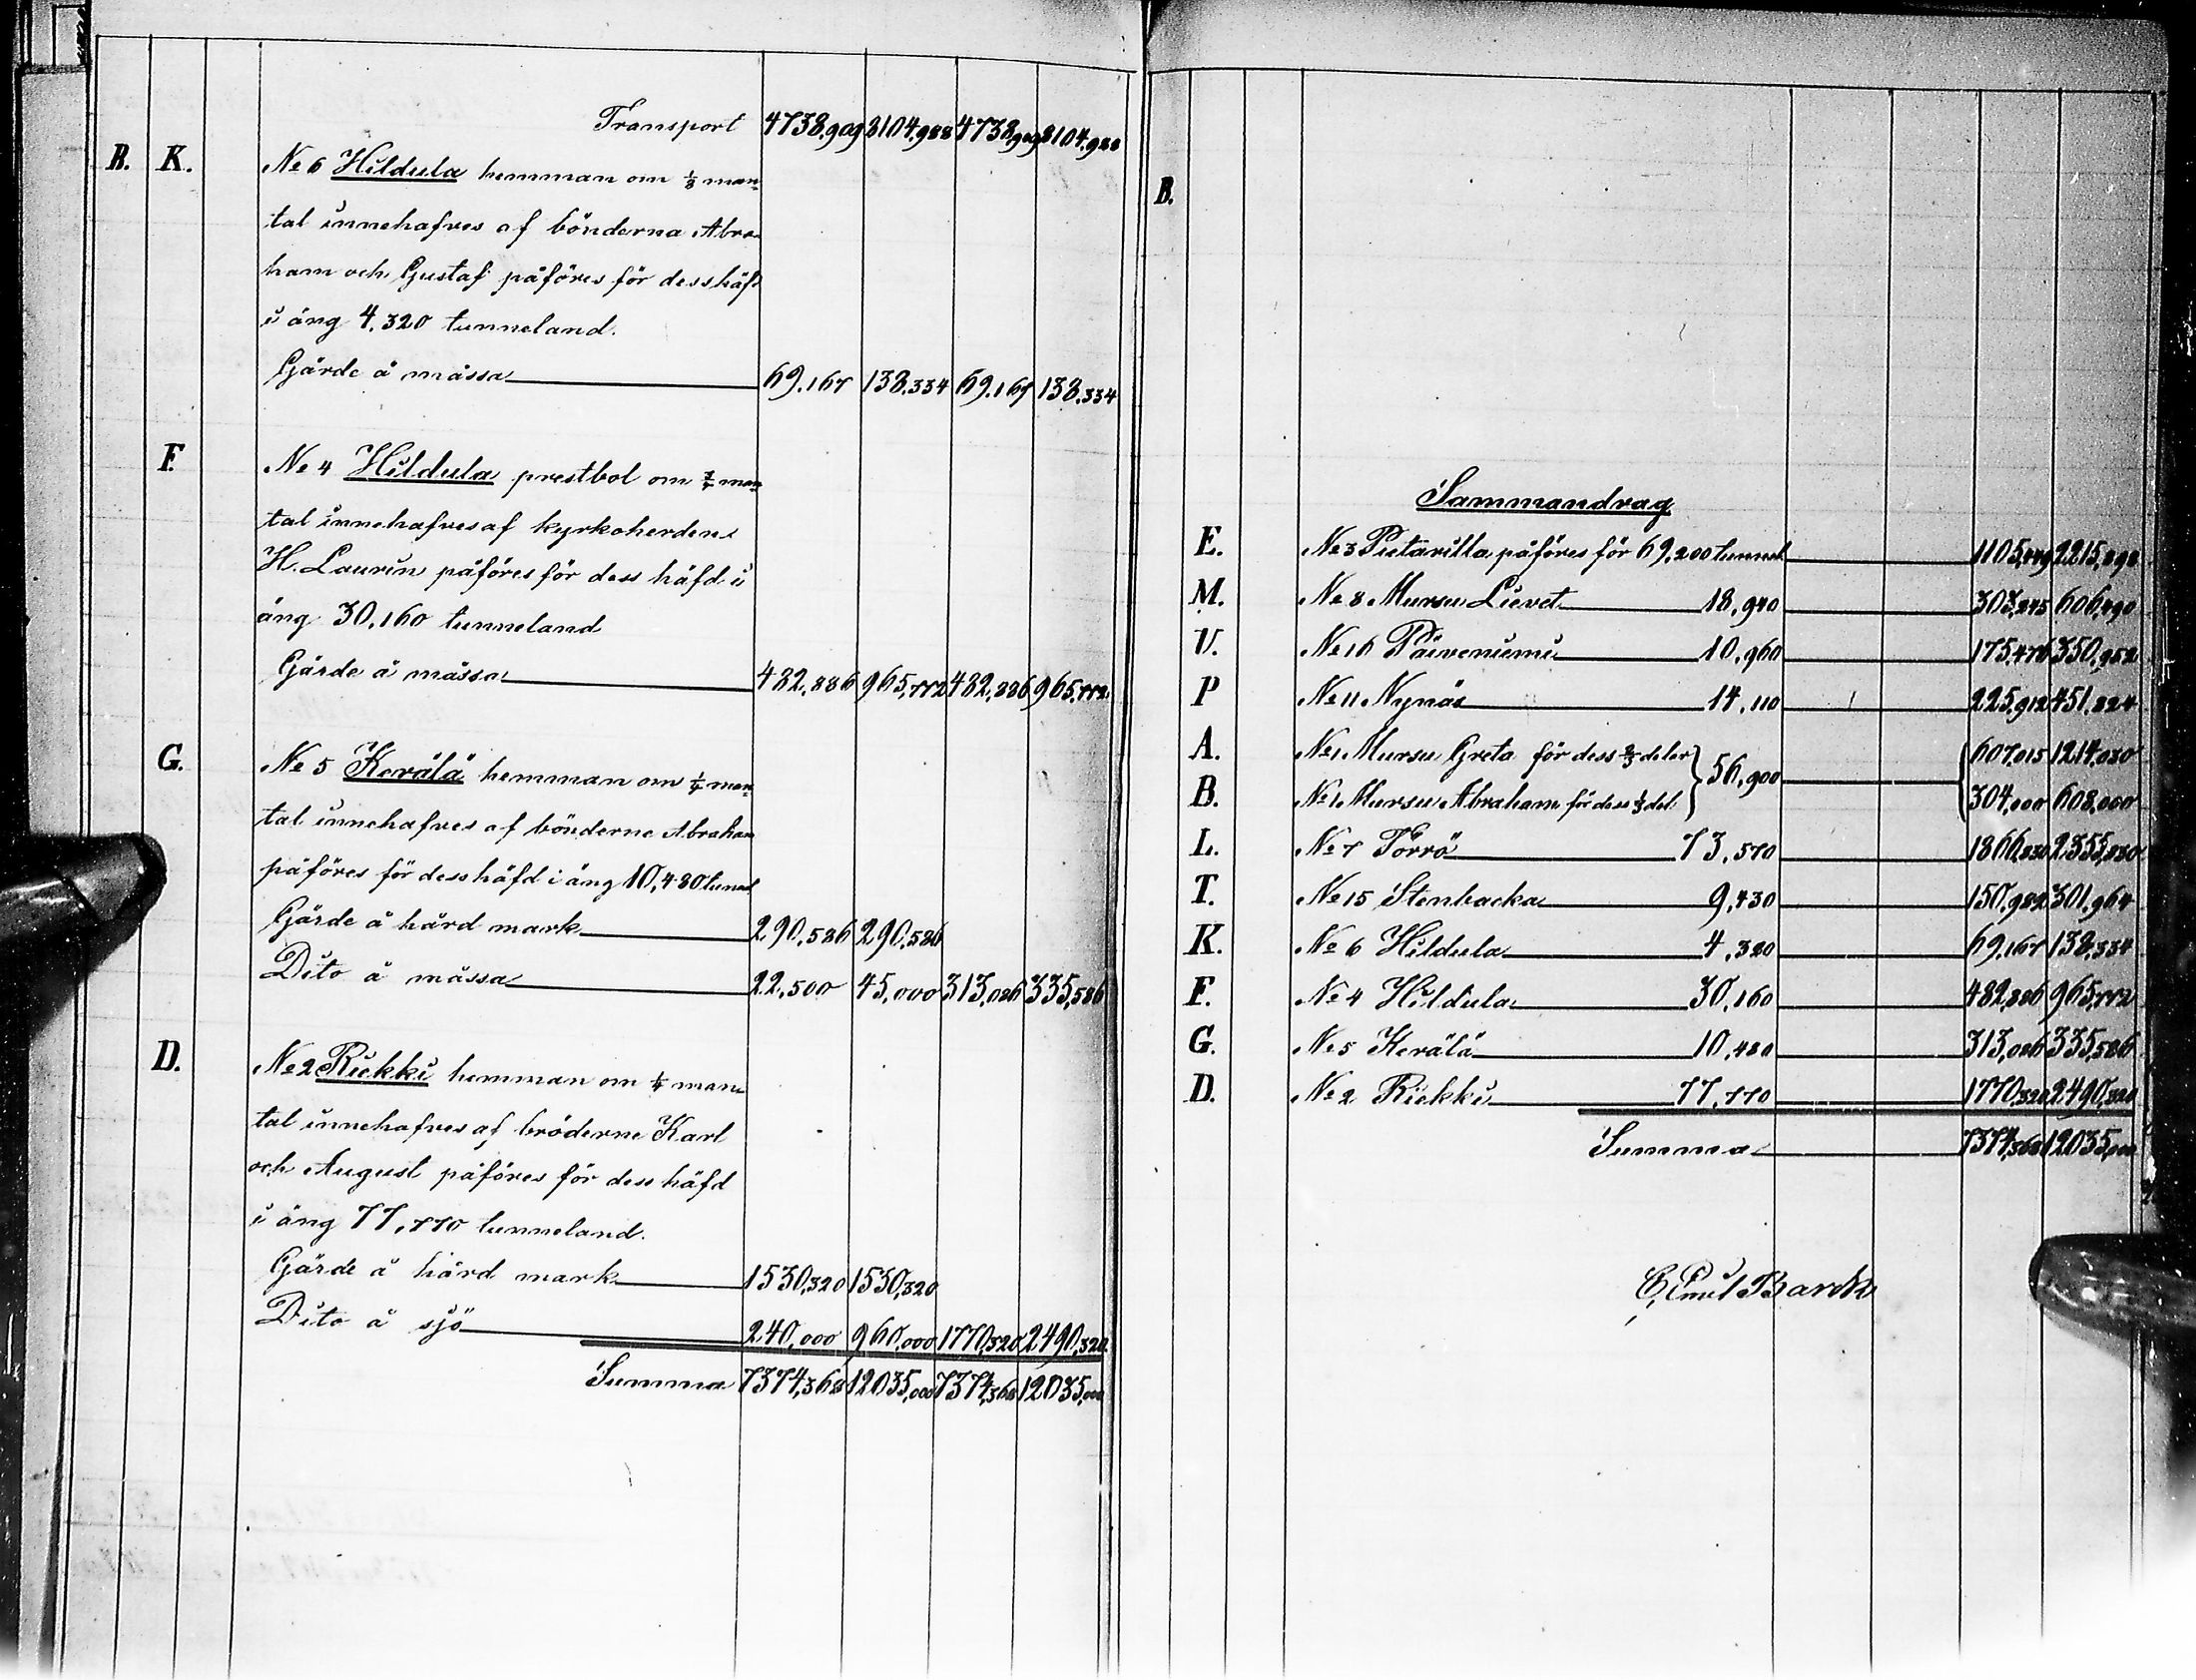 Transport 4738,909 8104,988 4738,909 8104,988
B. K. No 6 Hildula hemman om 1/8 man=
tal innehafves af bönderna Abra-
ham och Gustaf påföres för dess häfd
i äng 4,320 tunneland.
Gärde å mässa 69,167 138,334 69,167 138,334
F. No 4 Hildula prestbol om man
tal innehafves af kyrkoherden
H. Laurin påföres för dess häfd i
äng 30,160 tunneland
Gärde å mässa 482,886 965,772 482,886 965,772
G. No 5 Kerälä hemman om 1/4 man=
tal innehafves af bönderne Abraham
påföres för dess häfd i äng 10,480 tunnel
Gärde å hård mark 290,586 290,586
Dito å mässa 22,500 45,000 313,086 335,586
D. No 2 Riekki hemman om 1/4 man=
tal innehafves af bröderne Karl
och August påföres för dess häfd
i äng 77,770 tunneland.
Gärde å hård mark 1530,320 1530,320
Dito å sjö 240,000 960,000 1770,320 2490,320
Summa 7374,368 12035,000 7374,368 12035,000
B.
Sammandrag
E. No 3 Pietarilla påföres för 69,200 tunnel 1105,449 2215,898
M. No 8 Mursu Lievet 18,940 303,245 606,490
V. No 16 Päiveniemi 10,960 175,476 350,952
P No 11 Nynäs 14,110 225,912 451,824
A. No 1 Mursu Greta för dess 2/3 delar 56,900 607,015 1214,030
B. No 1 Mursu Abraham för dess 1/3 del 304,000 608,000
L. No 7 Törrö 73,570 1866,830 2355,830
T. No 15 Stenbacka 9,430 150,982 301,964
K. No 6 Hildula 4,320 69,167 138,334
F. No 4 Hildula 30,160 482,886 965,772
G. No 5 Kerälä 10,480 313,086 335,586
D. No 2 Riekki 77,770 1770,320 2490,320
Summa 7374,368 12035,000
Emil